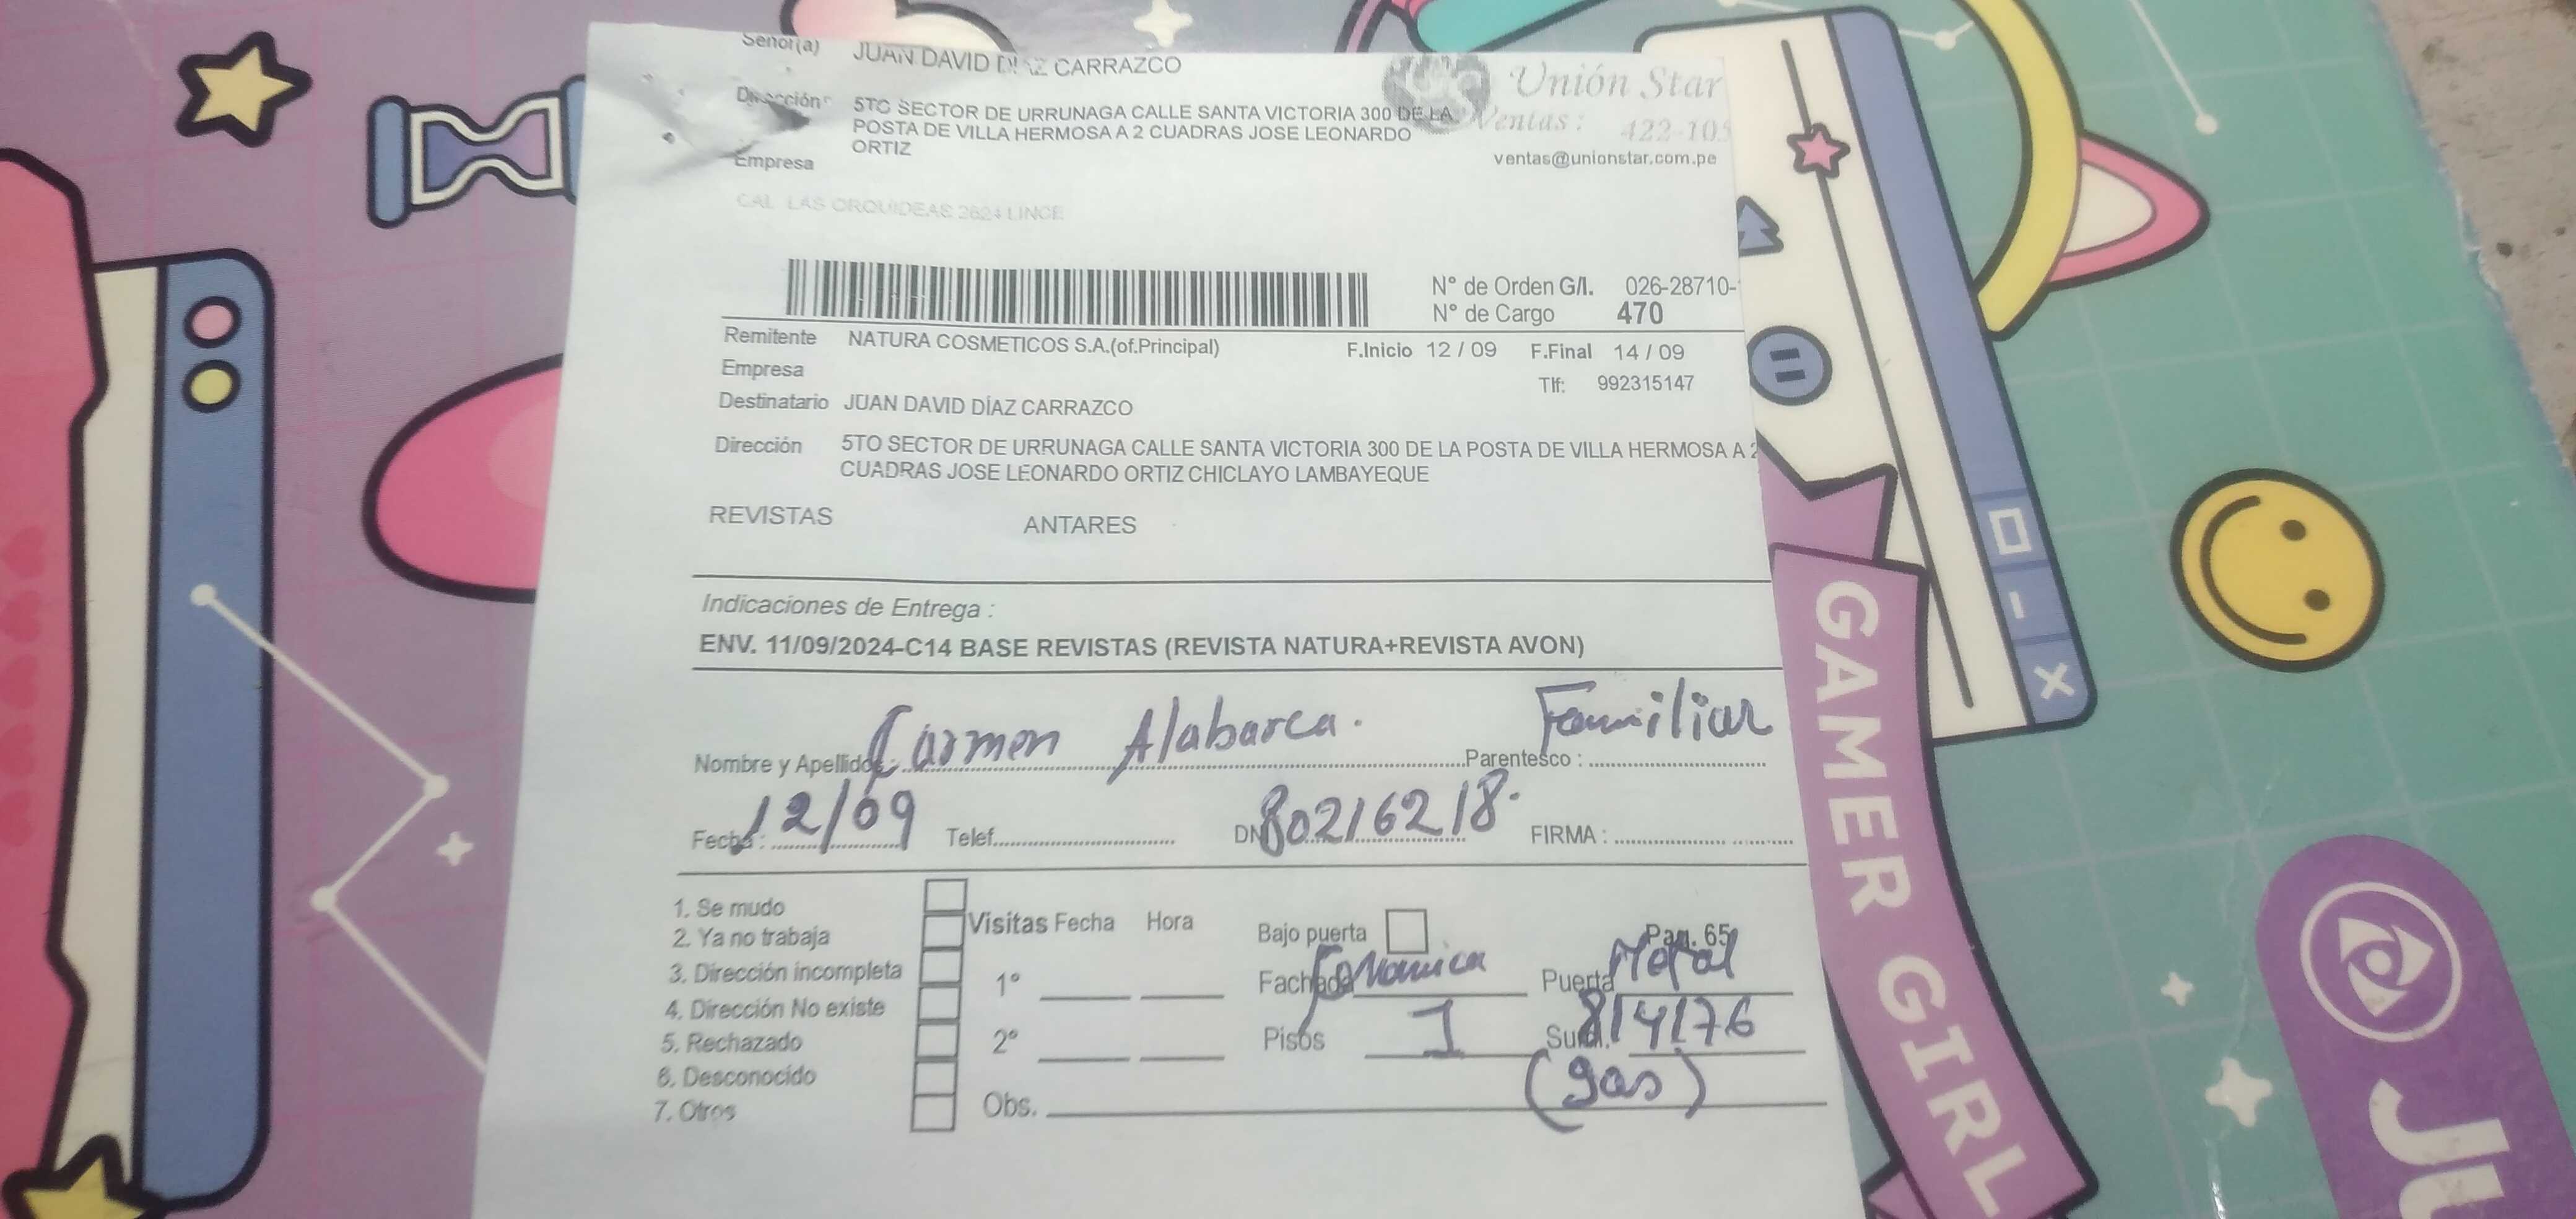 Señor(a) JUAN DAVID DIAZ CARRAZCO
Unión Star
Dirección 5TO SECTOR DE URRUNAGA CALLE SANTA VICTORIA 300 DE LA
POSTA DE VILLA HERMOSA A 2 CUADRAS JOSE LEONARDO
ORTIZ
Ventas : 422-105
Empresa
ventas@unionstar.com.pe
CAL LAS ORQUIDEAS 2624 LINCE
N° de Orden G/I. 026-28710-
N° de Cargo 470
Remitente NATURA COSMETICOS S.A.(of.Principal) F.Inicio 12 / 09 F.Final 14 / 09
Empresa Tlf: 992315147
Destinatario JUAN DAVID DÍAZ CARRAZCO
Dirección 5TO SECTOR DE URRUNAGA CALLE SANTA VICTORIA 300 DE LA POSTA DE VILLA HERMOSA A 2
CUADRAS JOSE LEONARDO ORTIZ CHICLAYO LAMBAYEQUE
REVISTAS ANTARES
Indicaciones de Entrega :
ENV. 11/09/2024-C14 BASE REVISTAS (REVISTA NATURA+REVISTA AVON)
Nombre y Apellido : Carmen Alabarca. Parentesco : Familiar
Fecha : 12/09 Telef. DNI 80216218. FIRMA :
1. Se mudo
2. Ya no trabaja
3. Dirección incompleta
4. Dirección No existe
5. Rechazado
6. Desconocido
7. Otros
Visitas Fecha Hora
1°
2°
Obs.
Bajo puerta Pag. 65
Fachada Puerta Metal
Pisos 1 Sum. 814176
(gas)
GAMER GIRL
JU